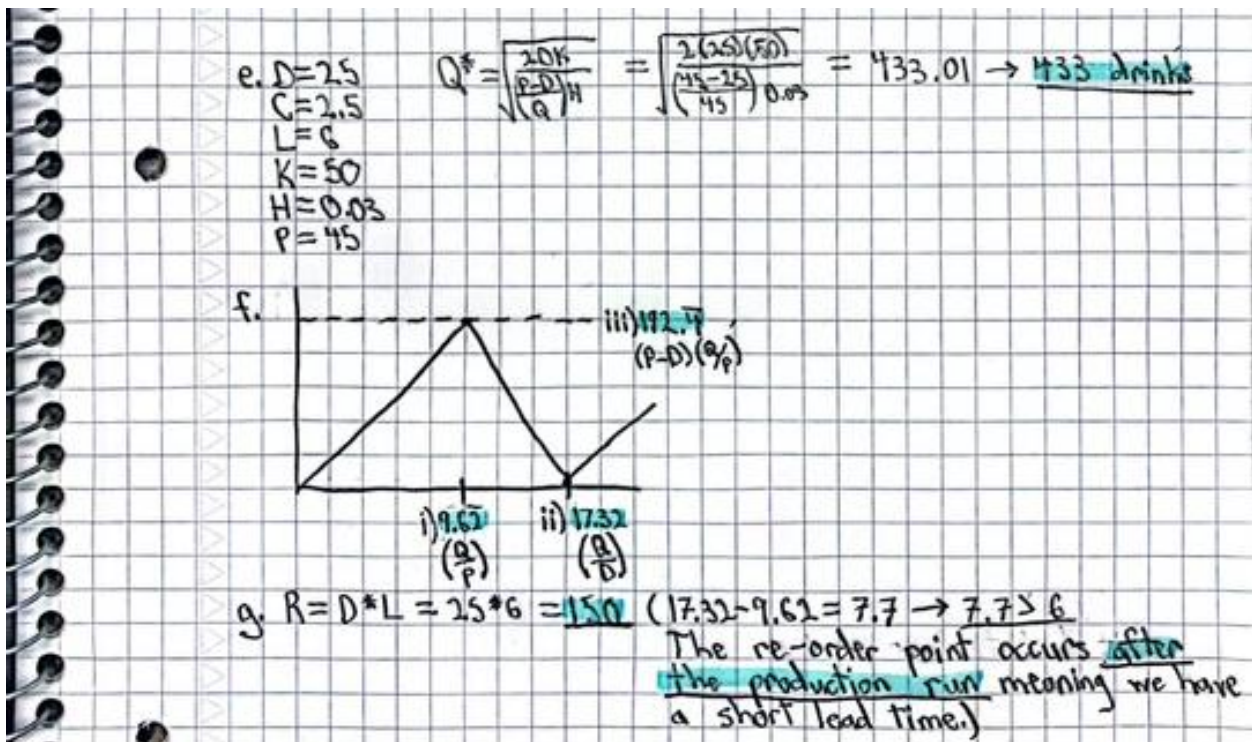 e. D=25
C=2.5
L=6
K=50
H=0.03
P=45
Q* = √(2DK / ((P-D)/Q)H) = √(2(25)(50) / ((45-25)/45) 0.03) = 433.01 → 433 drinks
f.
iii) 192.4
(P-D)(Q/P)
i) 9.62
(Q/P)
ii) 17.32
(Q/D)
g. R = D*L = 25*6 = 150 (17.32-9.62 = 7.7 → 7.7 > 6
The re-order point occurs after
the production run meaning we have
a short lead time.)